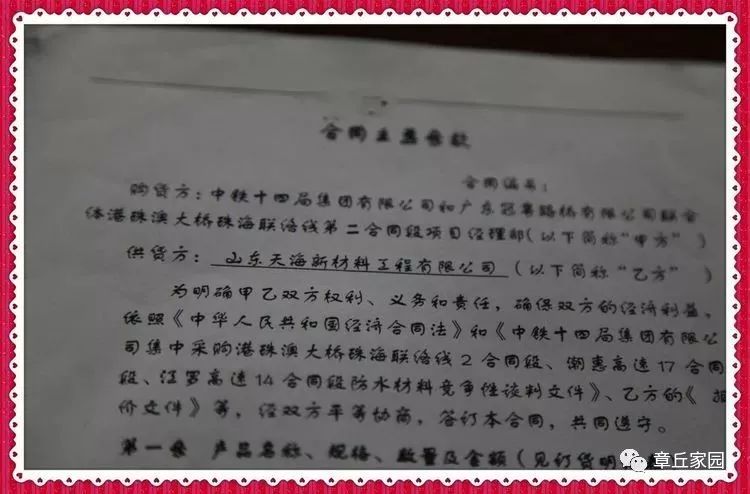 合同主要条款
合同编号：
购货方：中铁十四局集团有限公司和广东冠粤路桥有限公司联合
体港珠澳大桥珠海联络线第二合同段项目经理部（以下简称“甲方”）
供货方：山东天海新材料工程有限公司（以下简称“乙方”）
为明确甲乙双方权利、义务和责任，确保双方的经济利益，
依照《中华人民共和国经济合同法》和《中铁十四局集团有限公
司集中采购港珠澳大桥珠海联络线2合同段、潮惠高速17合同
段、江罗高速14合同段防水材料竞争性谈判文件》、乙方的《报
价文件》等，经双方平等协商，签订本合同，共同遵守。
第一条 产品名称、规格、数量及金额（见订货明
章丘家园